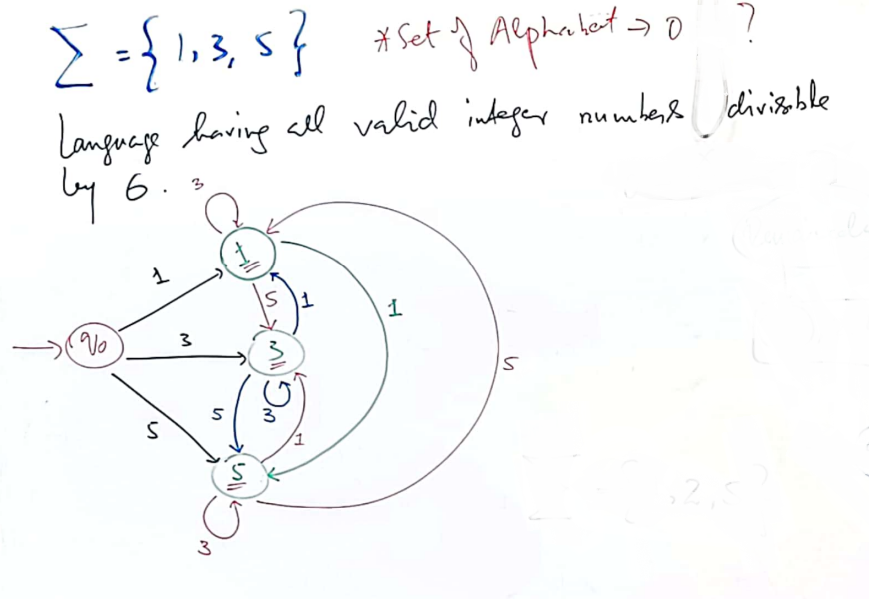 Σ = {1, 3, 5} *Set of Alphabet → 0 ?
Language having all valid integer numbers divisible
by 6.
3
1
1
5
1
1
q0
3
3
5
5
5
3
1
5
3